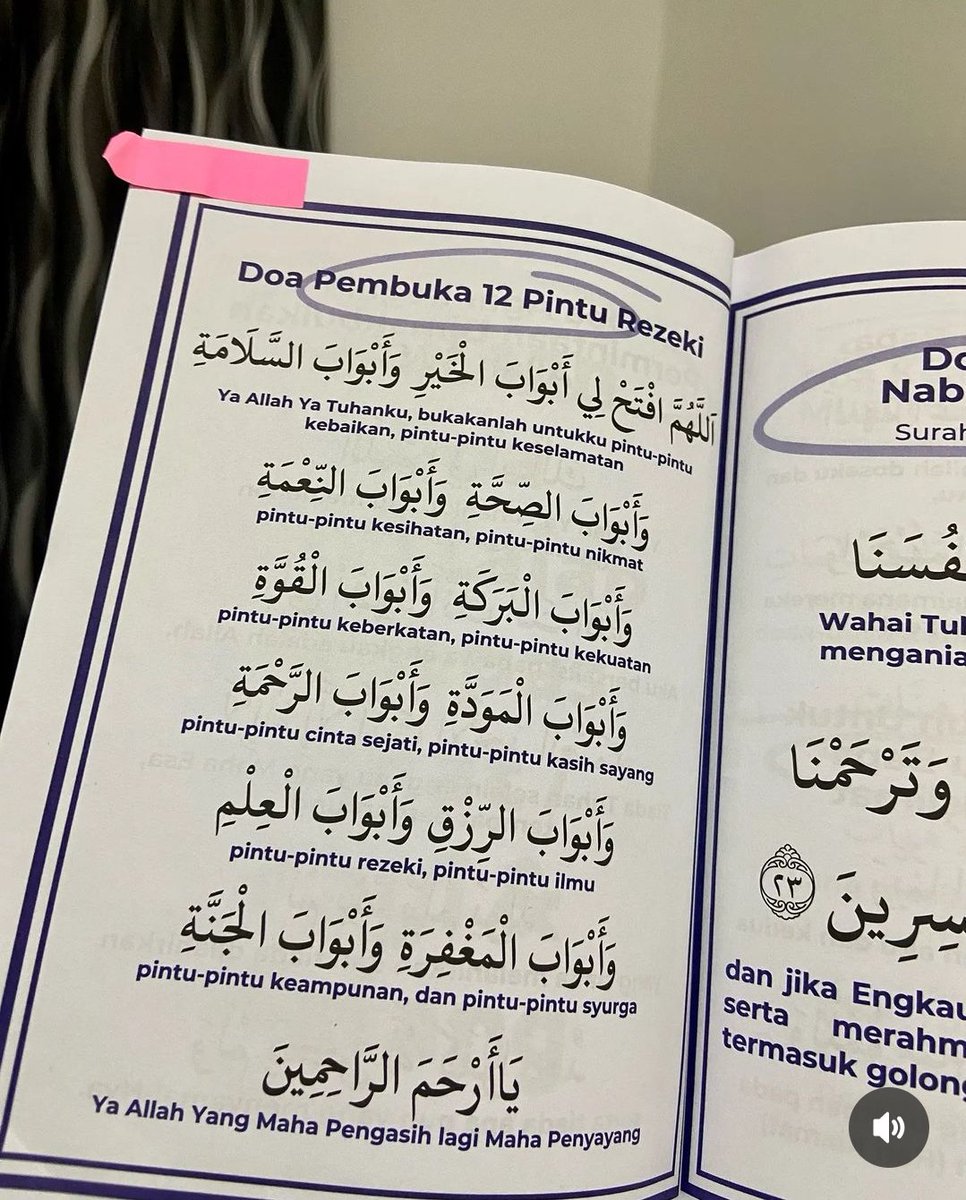 Doa Pembuka 12 Pintu Rezeki
اَللَّهُمَّ افْتَحْ لِي أَبْوَابَ الْخَيْرِ وَأَبْوَابَ السَّلَامَةِ
Ya Allah Ya Tuhanku, bukakanlah untukku pintu-pintu
kebaikan, pintu-pintu keselamatan
وَأَبْوَابَ الصِّحَّةِ وَأَبْوَابَ النِّعْمَةِ
pintu-pintu kesihatan, pintu-pintu nikmat
وَأَبْوَابَ الْبَرَكَةِ وَأَبْوَابَ الْقُوَّةِ
pintu-pintu keberkatan, pintu-pintu kekuatan
وَأَبْوَابَ الْمَوَدَّةِ وَأَبْوَابَ الرَّحْمَةِ
pintu-pintu cinta sejati, pintu-pintu kasih sayang
وَأَبْوَابَ الرِّزْقِ وَأَبْوَابَ الْعِلْمِ
pintu-pintu rezeki, pintu-pintu ilmu
وَأَبْوَابَ الْمَغْفِرَةِ وَأَبْوَابَ الْجَنَّةِ
pintu-pintu keampunan, dan pintu-pintu syurga
يَاأَرْحَمَ الرَّاحِمِينَ
Ya Allah Yang Maha Pengasih lagi Maha Penyayang
Do
Nab
Surah
فُسَنَا
Wahai Tuh
mengania
وَتَرْحَمْنَا
سِرِينَ ٢٣
dan jika Engkau
serta merahm
termasuk golong